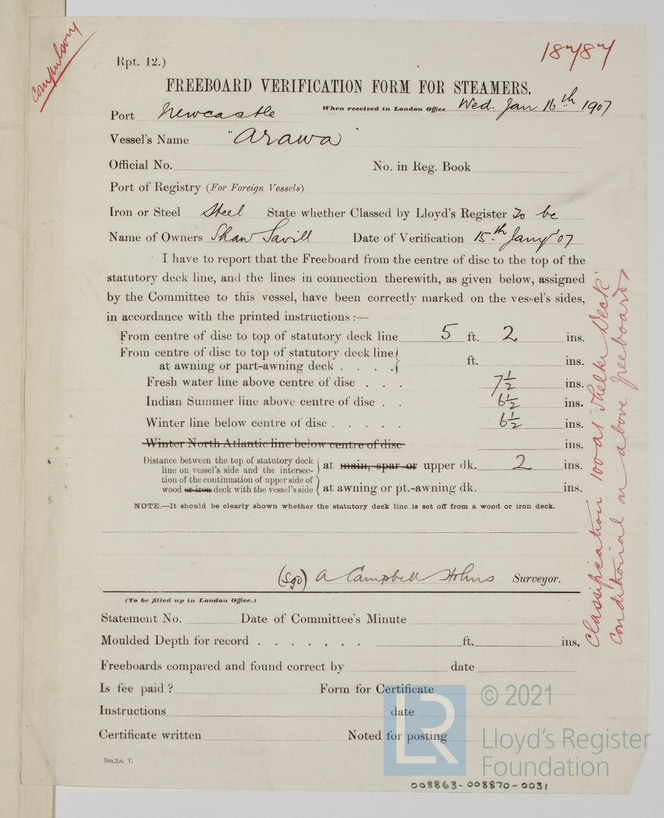 Compulsory
Rpt. 12.)
18787
FREEBOARD VERIFICATION FORM FOR STEAMERS.
Port Newcastle When received in London Office Wed. Jan 16th 1907
Vessel's Name "Arawa"
Official No. No. in Reg. Book
Port of Registry (For Foreign Vessels)
Iron or Steel Steel State whether Classed by Lloyd's Register To be
Name of Owners Shaw Savill Date of Verification 15th Jany '07
I have to report that the Freeboard from the centre of disc to the top of the
statutory deck line, and the lines in connection therewith, as given below, assigned
by the Committee to this vessel, have been correctly marked on the vessel's sides,
in accordance with the printed instructions :—
From centre of disc to top of statutory deck line 5 ft. 2 ins.
From centre of disc to top of statutory deck line
at awning or part-awning deck . . . . ft. ins.
Fresh water line above centre of disc . . . 7½ ins.
Indian Summer line above centre of disc . . 6½ ins.
Winter line below centre of disc . . . . . 6½ ins.
Winter North Atlantic line below centre of disc ins.
Distance between the top of statutory deck
line on vessel's side and the intersec-
tion of the continuation of upper side of
wood or iron deck with the vessel's side
at main, spar or upper dk. 2 ins.
at awning or pt.-awning dk. ins.
NOTE.—It should be clearly shown whether the statutory deck line is set off from a wood or iron deck.
(Sgd) A Campbell Holms Surveyor.
(To be filled up in London Office.)
Statement No. Date of Committee's Minute
Moulded Depth for record . . . . . . . ft. ins.
Freeboards compared and found correct by date
Is fee paid ? Form for Certificate
Instructions date
Certificate written Noted for posting
Classification 100A1 'Shelter Deck'
conditional on above freeboards
LR
© 2021
Lloyd's Register
Foundation
008863-008870-0031